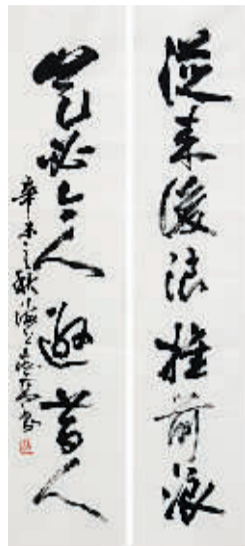 從来後浪推前浪
豈必今人遜昔人
辛未之秋